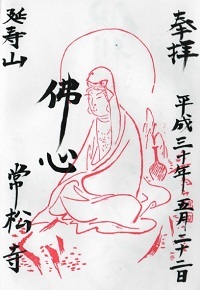 奉拝
平成三十年五月二十二日
佛心
延寿山
常松寺